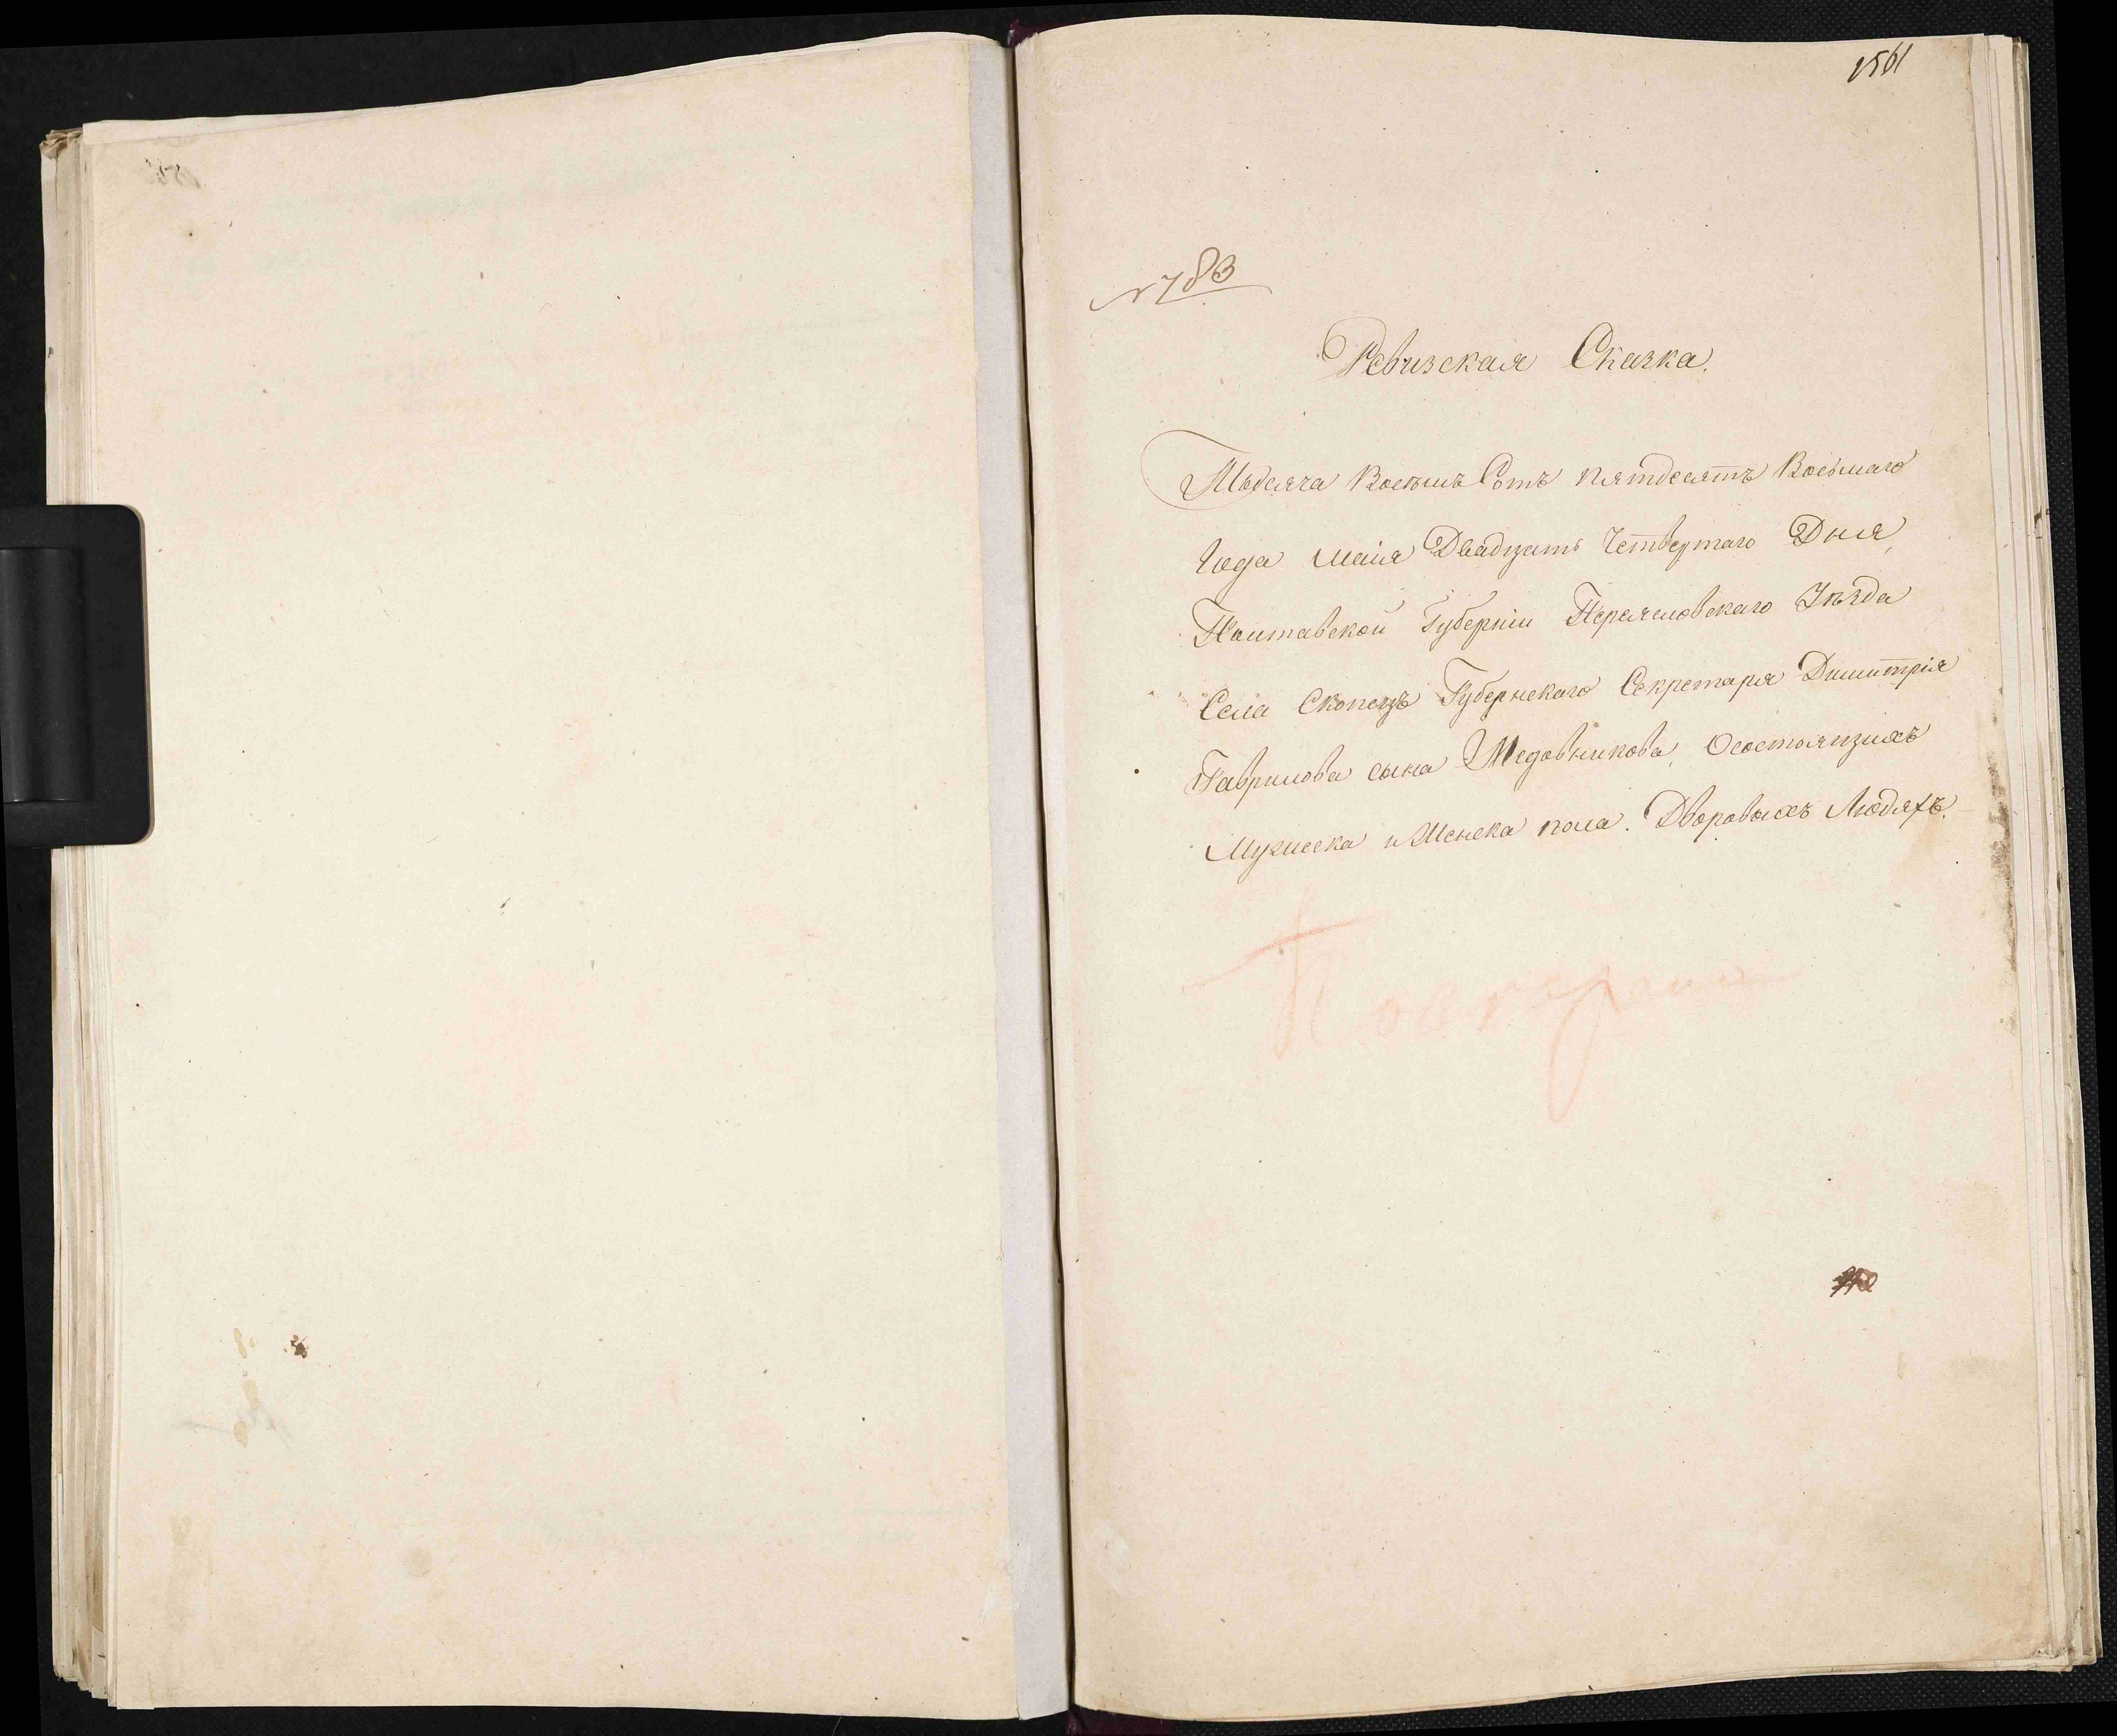 1561
№ 783
Ревизская Сказка.
Тысяча Восемь Сотъ пятдесятъ Восьмаго
Года маія Двадцать Четвертаго Дня,
Полтавской Губерніи Переяславскаго Уѣзда
Села Скопецъ Губернскаго Секретаря Димитрія
Гаврилова сына Медовникова, Осостоящихъ
Мужеска и Женска пола. Дворовыхъ Людяхъ.